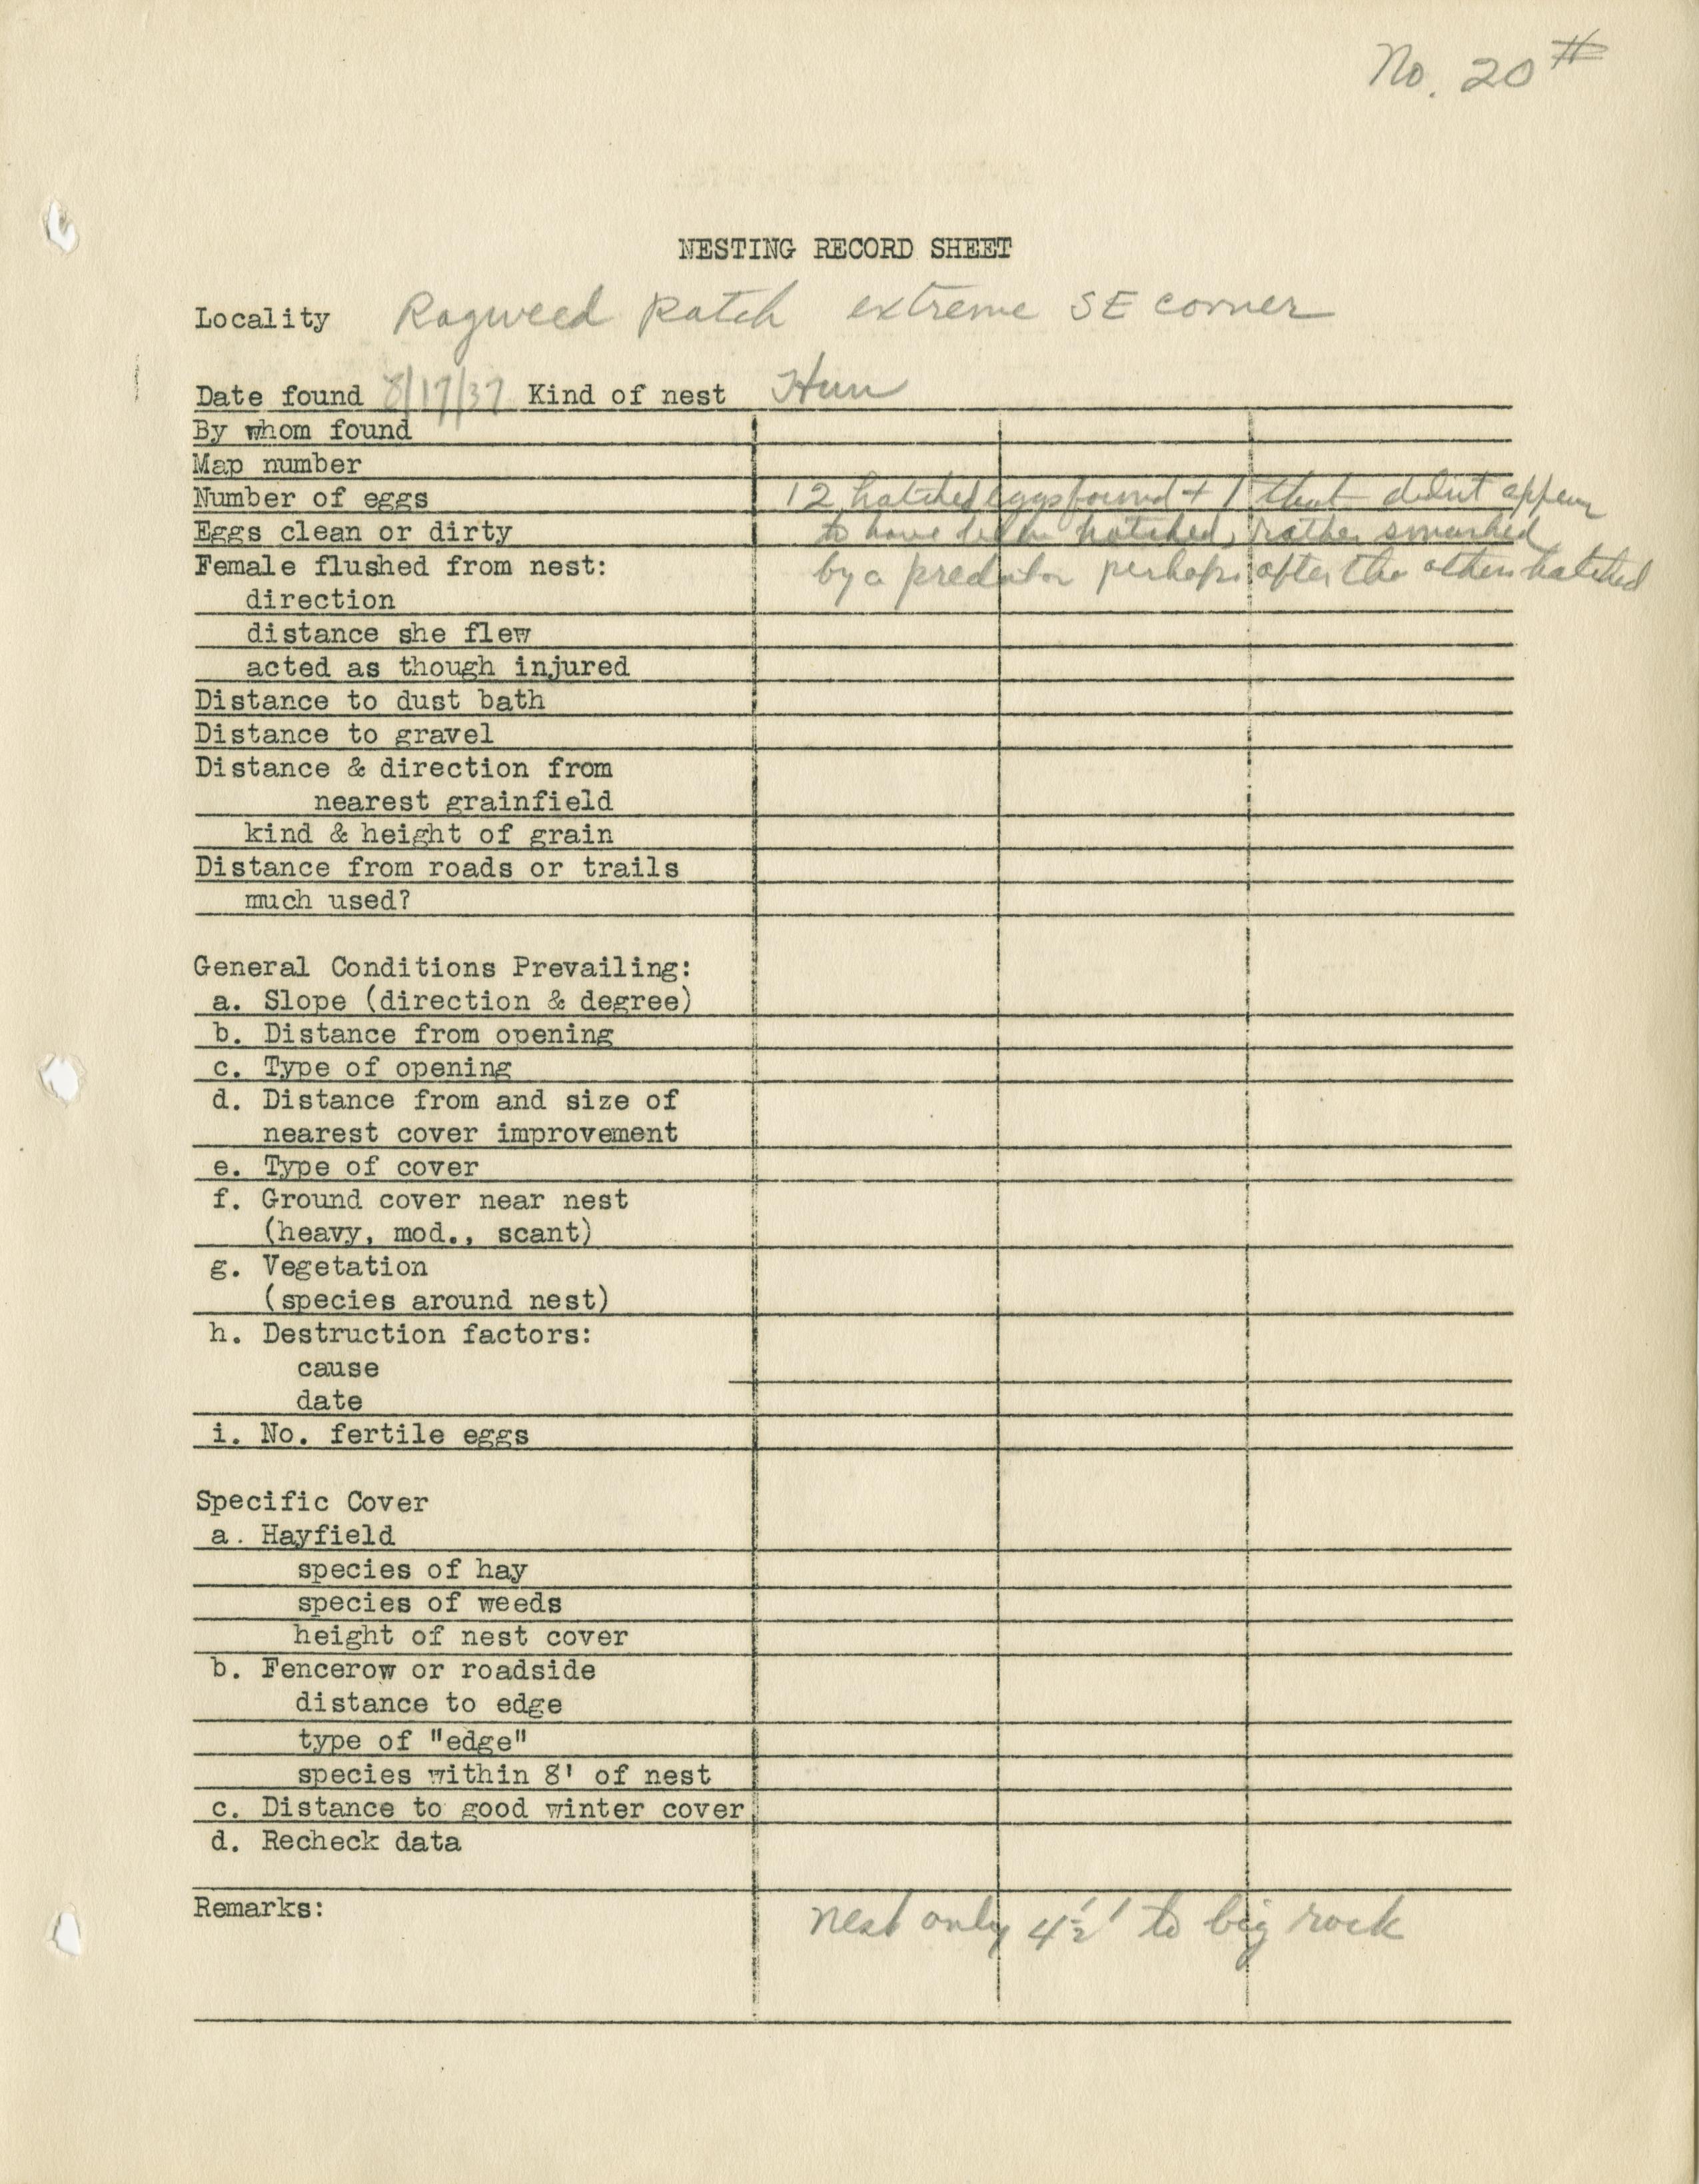 No. 20 #
NESTING RECORD SHEET
Locality Ragweed Patch extreme SE corner
Date found 8/17/37 Kind of nest Hun
By whom found
Map number
Number of eggs 12 hatched eggs found + 1 that didnt appear
Eggs clean or dirty to have been hatched, rather smashed
Female flushed from nest: by a predator perhaps after the others hatched
direction
distance she flew
acted as though injured
Distance to dust bath
Distance to gravel
Distance & direction from
nearest grainfield
kind & height of grain
Distance from roads or trails
much used?
General Conditions Prevailing:
a. Slope (direction & degree)
b. Distance from opening
c. Type of opening
d. Distance from and size of
nearest cover improvement
e. Type of cover
f. Ground cover near nest
(heavy, mod., scant)
g. Vegetation
(species around nest)
h. Destruction factors:
cause
date
i. No. fertile eggs
Specific Cover
a. Hayfield
species of hay
species of weeds
height of nest cover
b. Fencerow or roadside
distance to edge
type of "edge"
species within 8' of nest
c. Distance to good winter cover
d. Recheck data
Remarks: nest only 4½' to big rock